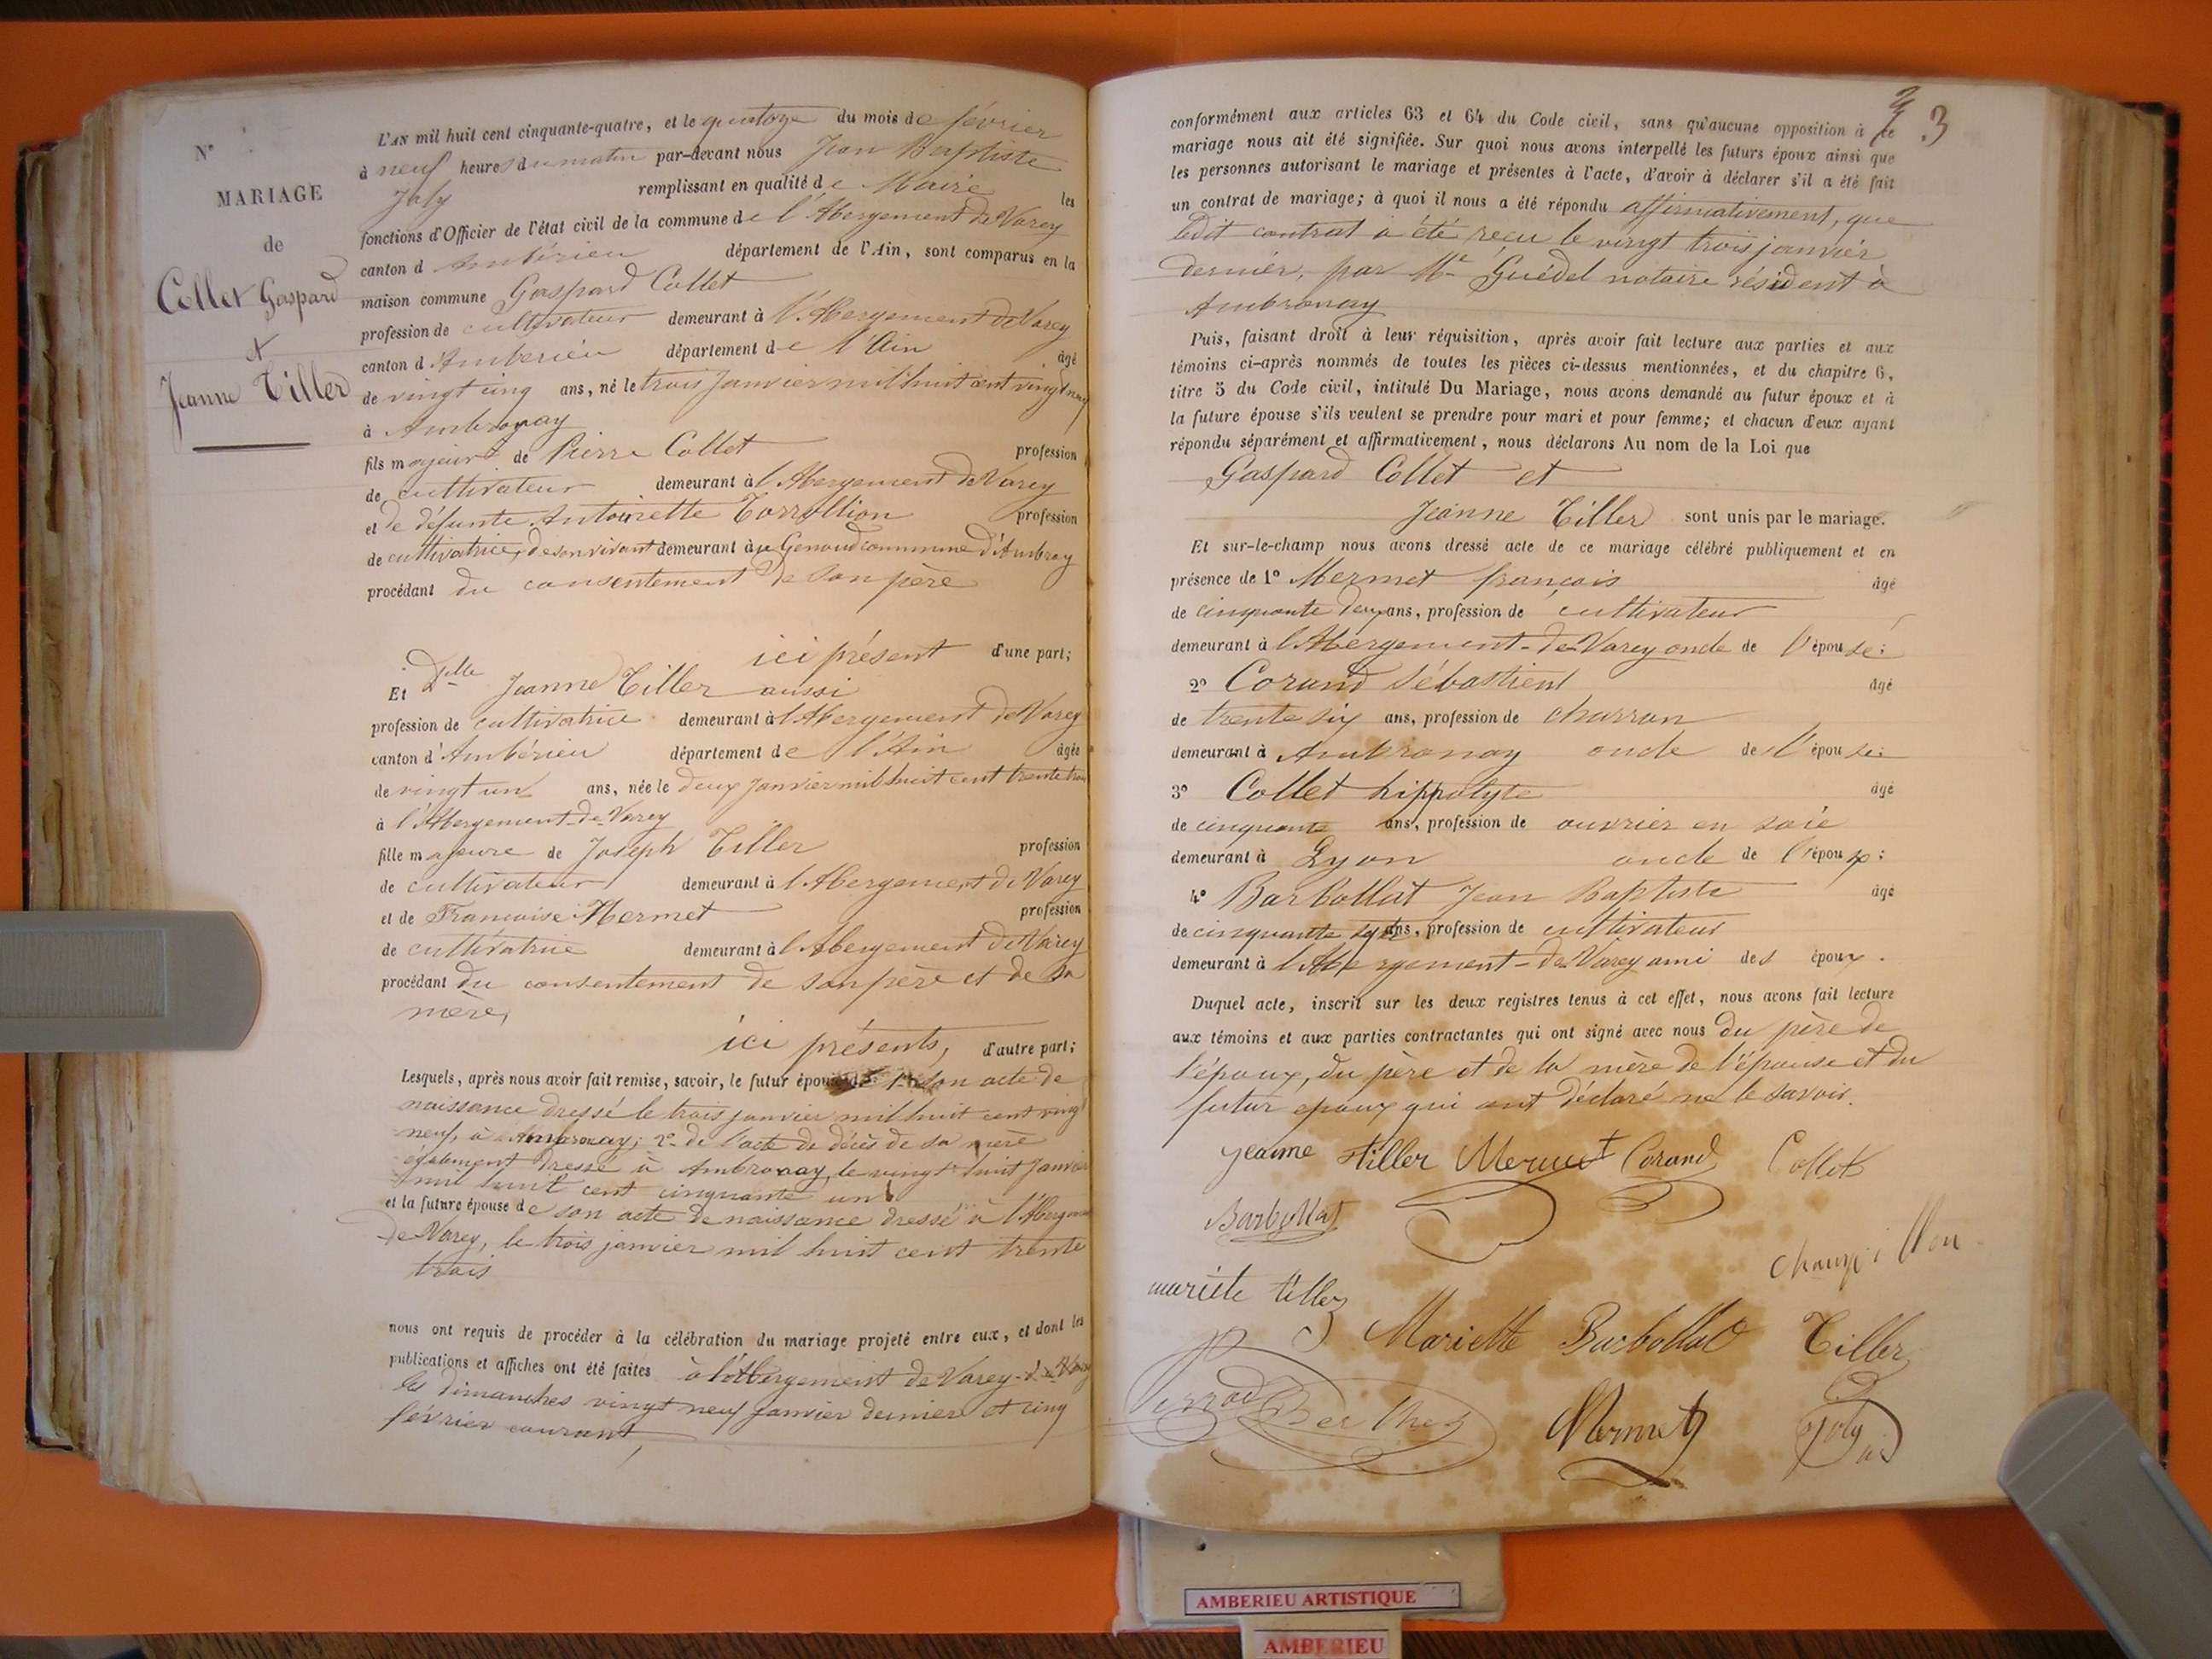 N°
MARIAGE
de
Collet Gaspard
et
Jeanne Tiller
L'AN mil huit cent cinquante-quatre, et le quatorze du mois de février
à neuf heures du matin par-devant nous Jean Baptiste
Joly remplissant en qualité de Maire les
fonctions d'Officier de l'état civil de la commune de l'Abergement de Varey
canton d'Ambérieu département de l'Ain, sont comparus en la
maison commune Gaspard Collet
profession de cultivateur demeurant à l'Abergement de Varey
canton d'Ambérieu département de l'Ain âgé
de vingt cinq ans, né le trois Janvier mil huit cent vingt neuf
à Ambronay
fils majeur de Pierre Collet profession
de cultivateur demeurant à l'Abergement de Varey
et de défunte Antoinette profession
de cultivatrice, de son vivant demeurant à commune d'Ambronay
procédant du consentement de son père
ici présent d'une part;
Et Dlle Jeanne Tiller aussi
profession de cultivatrice demeurant à l'Abergement de Varey
canton d'Ambérieu département de l'Ain âgée
de vingt un ans, née le deux Janvier mil huit cent trente trois
à l'Abergement-de-Varey
fille majeure de Joseph Tiller profession
de cultivateur demeurant à l'Abergement de Varey
et de Francoise Mermet profession
de cultivatrice demeurant à l'Abergement de Varey
procédant du consentement de son père et de sa
mère,
ici présents, d'autre part;
Lesquels, après nous avoir fait remise, savoir, le futur époux de 1° son acte de
naissance dressé le trois janvier mil huit cent vingt
neuf, à Ambronay; 2° de l'acte de décès de sa mère
également dressé à Ambronay, le vingt huit Janvier
mil huit cent cinquante un
et la future épouse de son acte de naissance dressé à l'Abergement
de Varey, le trois janvier mil huit cent trente
trois
nous ont requis de procéder à la célébration du mariage projeté entre eux, et dont les
publications et affiches ont été faites à l'Abergement de Varey
les dimanches vingt neuf janvier dernier et cinq
février courant,
3
conformément aux articles 63 et 64 du Code civil, sans qu'aucune opposition à ce
mariage nous ait été signifiée. Sur quoi nous avons interpellé les futurs époux ainsi que
les personnes autorisant le mariage et présentes à l'acte, d'avoir à déclarer s'il a été fait
un contrat de mariage; à quoi il nous a été répondu affirmativement, que
ledit contrat a été reçu le vingt trois janvier
dernier, par Me Guédel notaire résident à
Ambronay
Puis, faisant droit à leur réquisition, après avoir fait lecture aux parties et aux
témoins ci-après nommés de toutes les pièces ci-dessus mentionnées, et du chapitre 6,
titre 5 du Code civil, intitulé Du Mariage, nous avons demandé au futur époux et à
la future épouse s'ils veulent se prendre pour mari et pour femme; et chacun d'eux ayant
répondu séparément et affirmativement, nous déclarons Au nom de la Loi que
Gaspard Collet et
Jeanne Tiller sont unis par le mariage.
Et sur-le-champ nous avons dressé acte de ce mariage célébré publiquement et en
présence de 1° Mermet françois âgé
de cinquante deux ans, profession de cultivateur
demeurant à l'Abergement-de-Varey oncle de l'épouse;
2° Corand Sébastient âgé
de trente six ans, profession de charron
demeurant à Ambronay oncle de l'épouse;
3° Collet hippolyte âgé
de cinquante ans, profession de ouvrier en soie
demeurant à Lyon oncle de l'époux;
4° Barbollat Jean Baptiste âgé
de cinquante sept ans, profession de cultivateur
demeurant à l'Abergement-de-Varey ami des époux.
Duquel acte, inscrit sur les deux registres tenus à cet effet, nous avons fait lecture
aux témoins et aux parties contractantes qui ont signé avec nous du père de
l'époux, du père et de la mère de l'épouse et du
futur époux qui ont déclaré ne le savoir.
jeanne tiller Mermet Corand Collet
Barbollat
champillon
mariete tiller
Mariette Barbollat Tiller
Berthet Mermet Joly
AMBERIEU ARTISTIQUE
AMBERIEU